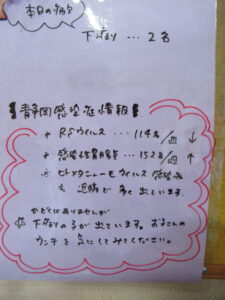 本日の病欠
下痢 … 2名
【静岡感染症情報】
* RSウイルス … 114名/週 ↓
* 感染性胃腸炎 … 152名/週 ↑
* ヒトメタニューモウイルス感染症
も 近隣で多く出ています。
かぜではありませんが
下痢の子が出ています。お子さんの
ウンチを気にしてみてください。